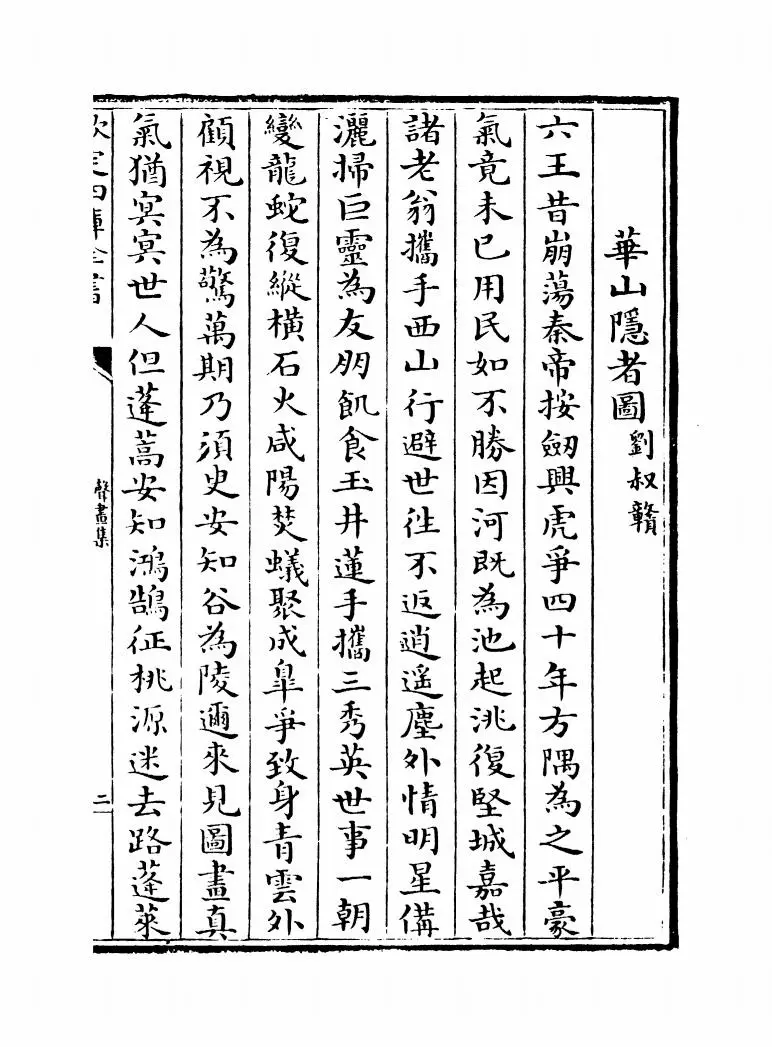 華山隱者圖 劉叔贛
六王昔崩蕩秦帝按劔興虎爭四十年方隅為之平豪
氣竟未已用民如不勝因河既為池起洮復堅城嘉哉
諸老翁攜手西山行避世徃不返逍遥塵外情明星備
灑掃巨靈為友朋飢食玉井蓮手攜三秀英世事一朝
變龍蛇復縱橫石火咸陽焚蟻聚成臯爭致身青雲外
顧視不為驚萬期乃須史安知谷為陵邇來見圖畫真
氣猶㝠㝠世人但蓬蒿安知鴻鵠征桃源迷去路蓬萊
欽定四庫全書
聲畫集
二